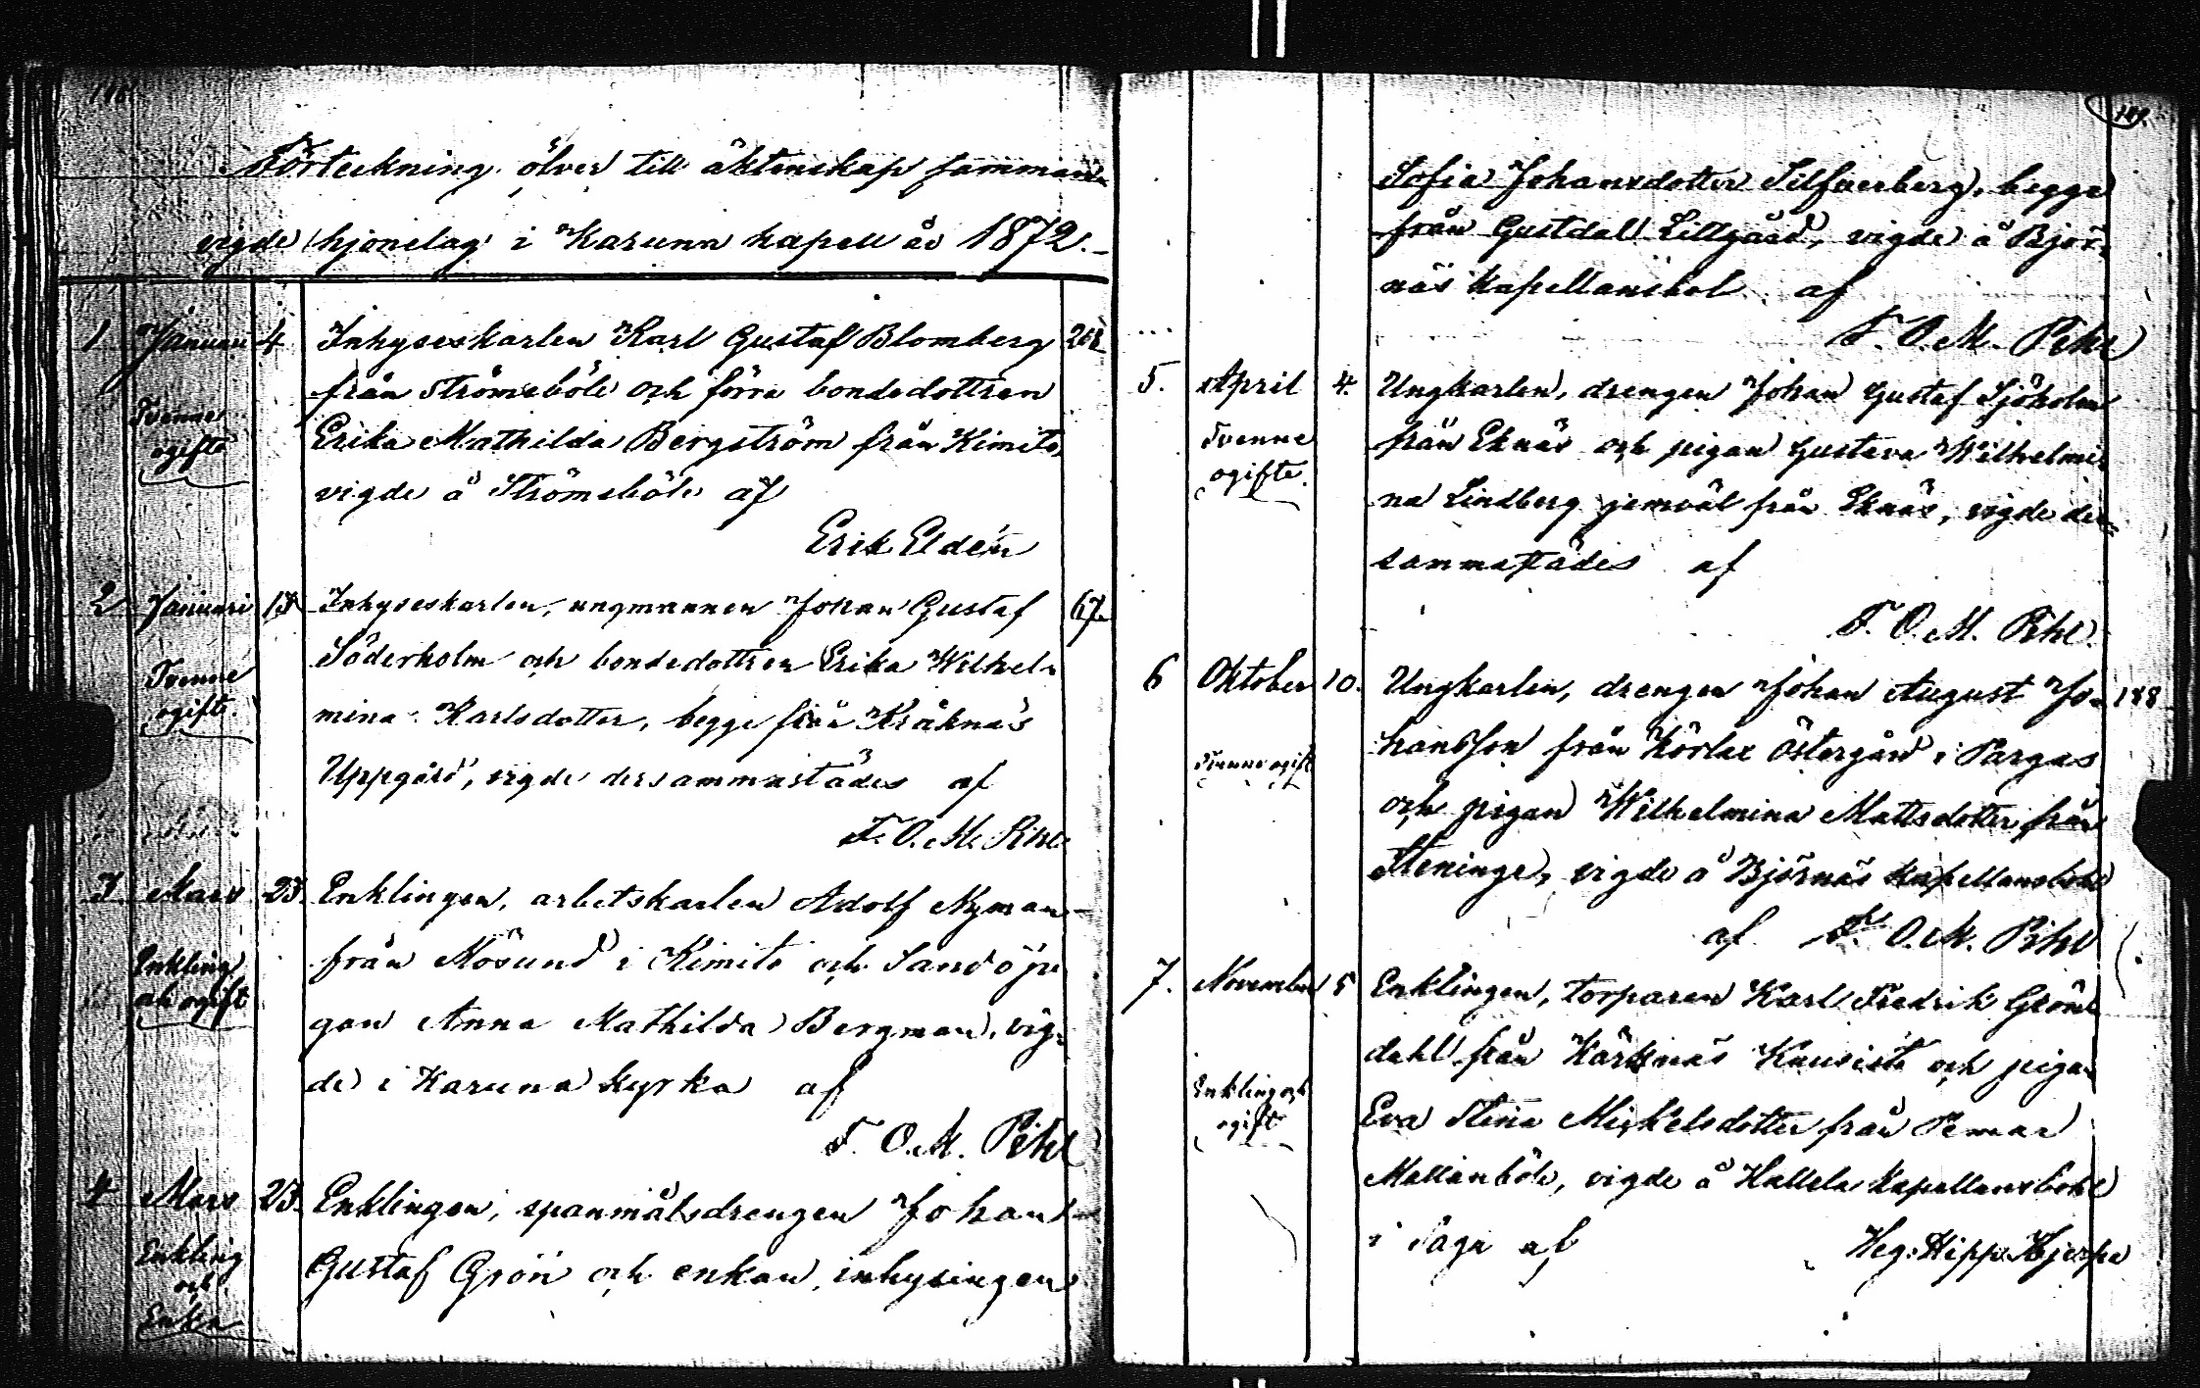 Förteckning öfver till äktenskap samman-
vigde hjonelag i Karuna kapell år 1872.
1 Januari 4 Inhyseskarlen Karl Gustaf Blomberg
Tvenne ogifte
från Strömsböle och förra bondedottren
Erika Mathilda Bergström från Kimito,
vigde å Strömsböle af
Erik Eldén
2 Januari Inhyseskarlen, ungmannen Johan Gustaf 67
Tvenne ogifte.
Söderholm och bondedottren Erika Wilhel-
mina Karlsdotter, begge från Kräknäs
Uppgård, vigde dersammastädes af
F. O. M. Pihl
3 Mars 23. Enklingen, arbetskarlen Adolf Nyman
Enkling och ogift
från Mösund i Kimito och Sandö pi-
gan Anna Mathilda Bergman, vig-
de i Karuna kyrka af
F. O. M. Pihl
4 Mars 23. Enklingen, spanmålsdrengen Johan
Enkling och Enka
Gustaf Grön och enkan, inhysingen
189.
Sofia Johansdotter Silfverberg, begge
från Gustdal Lillgård, vigde å Björ-
näs kapellansbol af
F. O. M. Pihl
5. April 4. Ungkarlen, drengen Johan Gustaf Sjöholm
Tvenne ogifte.
från Eknäs och pigan Gustava Wilhelmi-
na Lindberg jemväl från Eknäs, vigde der-
sammastädes af
F. O. M. Pihl.
6 Oktober 10. Ungkarlen, drengen Johan August Jo- 188
Tvenne ogift
hansson från Körlax Östergård i Pargas
och pigan Wilhelmina Mattsdotter från
Steninge, vigde å Björnäs kapellansbohl
af F. O. M. Pihl
7. November 5 Enklingen, torparen Karl Fredrik Grön-
Enkling och ogift
dahl från Kärknäs och pigan
Eva Stina Mickelsdotter från Pemar
vigde å Hallela kapellansbohl
i Sagu af Heg: Hipp. Hjerpe